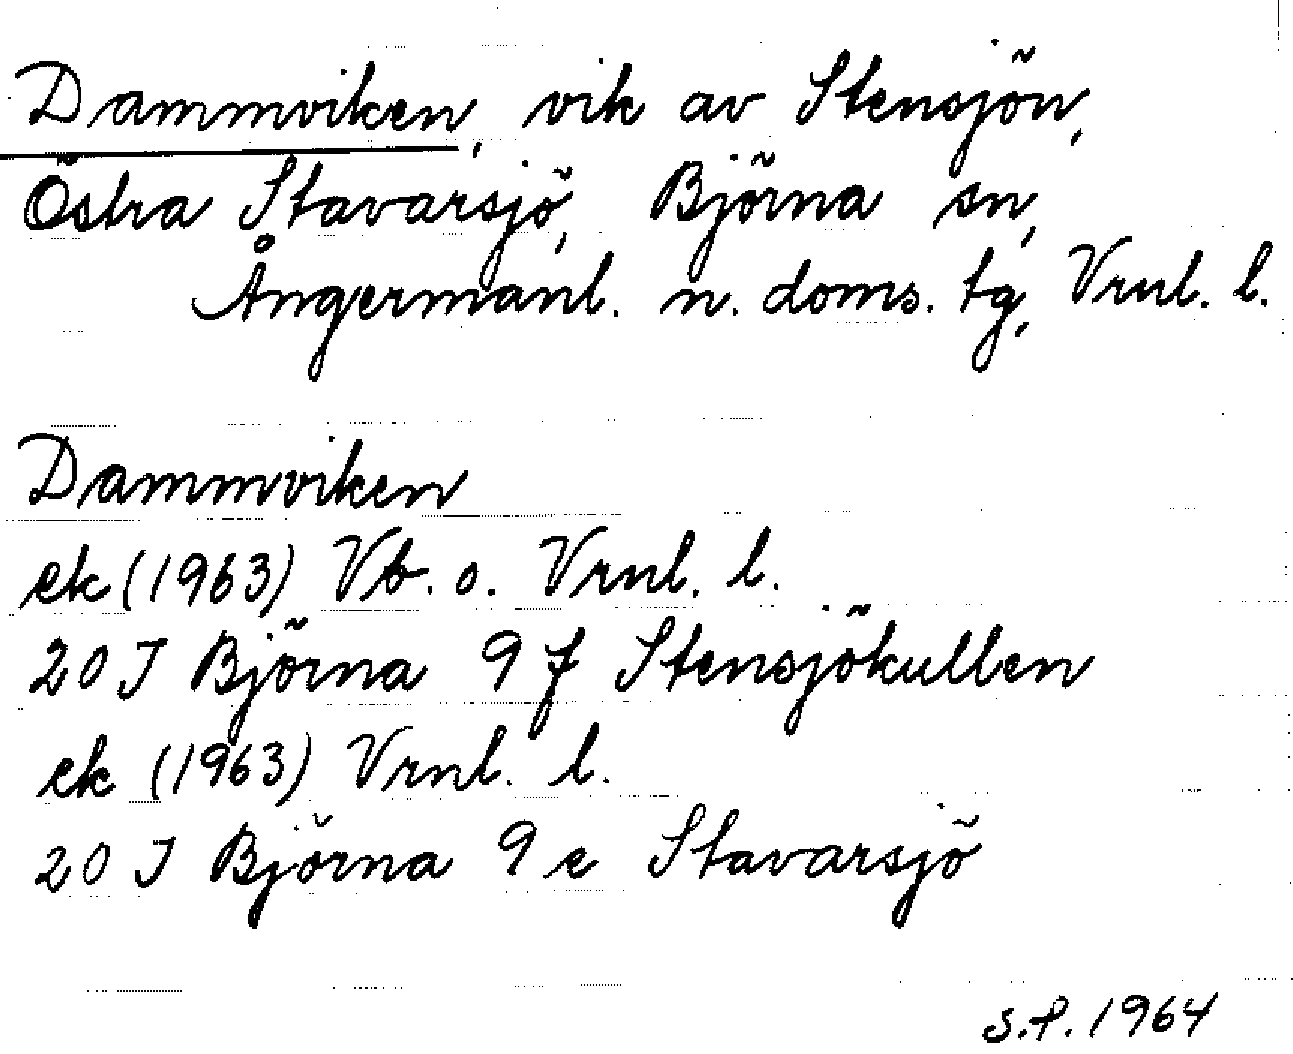 Dammviken, vik av Stensjön,
Östra Stavarsjö, Björna sn,
Ångermanl. n. doms. tg, Vrnl. l.
Dammviken
ek (1963) Vb. o. Vrnl. l.
20 J Björna 9 f Stensjökullen
ek (1963) Vrnl. l.
20 J Björna 9 e Stavarsjö
S.P. 1964